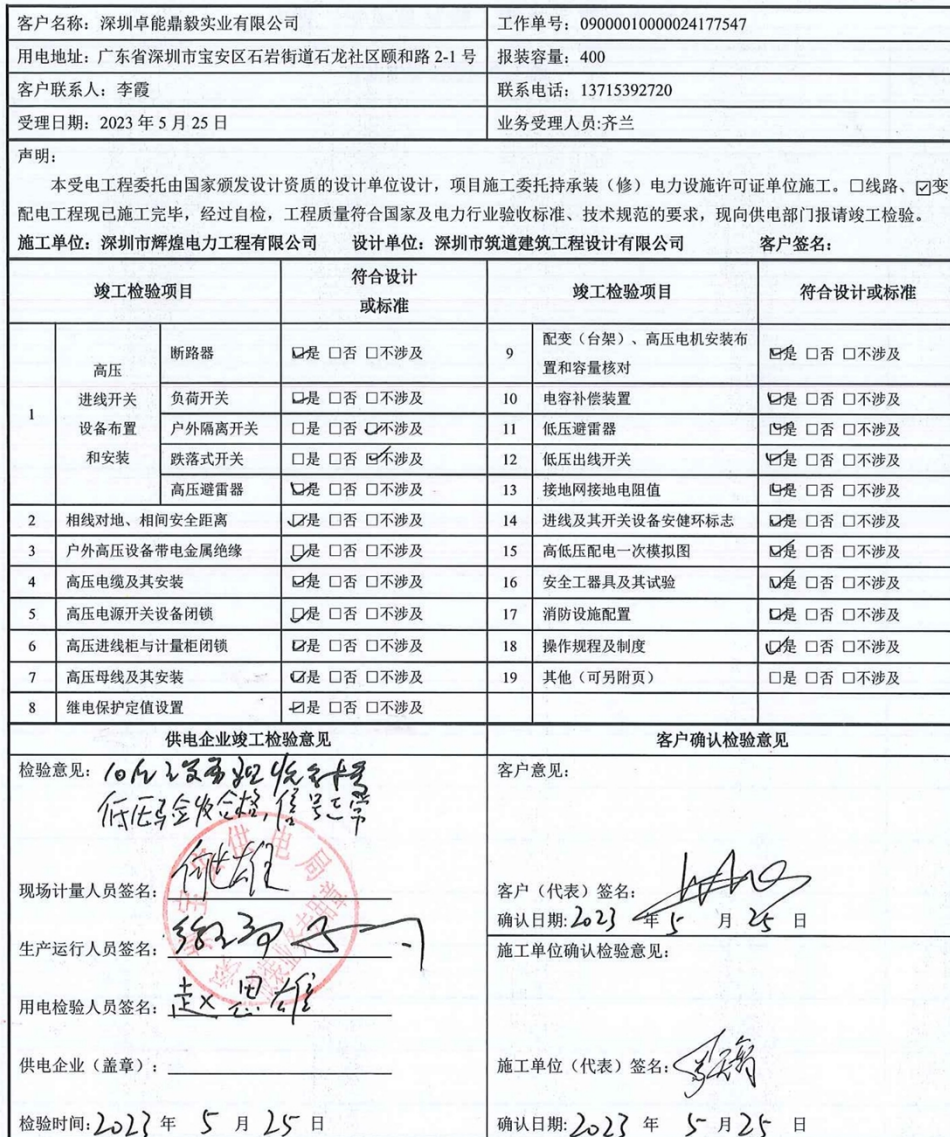 客户名称：深圳卓能鼎毅实业有限公司 工作单号：09000010000024177547
用电地址：广东省深圳市宝安区石岩街道石龙社区颐和路 2-1 号 报装容量：400
客户联系人：李霞 联系电话：13715392720
受理日期：2023 年 5 月 25 日 业务受理人员:齐兰
声明：
本受电工程委托由国家颁发设计资质的设计单位设计，项目施工委托持承装（修）电力设施许可证单位施工。□线路、☑变
配电工程现已施工完毕，经过自检，工程质量符合国家及电力行业验收标准、技术规范的要求，现向供电部门报请竣工检验。
施工单位：深圳市辉煌电力工程有限公司 设计单位：深圳市筑道建筑工程设计有限公司 客户签名：
竣工检验项目 符合设计或标准 竣工检验项目 符合设计或标准
1 高压进线开关设备布置和安装 断路器 ☑是 □否 □不涉及 9 配变（台架）、高压电机安装布置和容量核对 ☑是 □否 □不涉及
负荷开关 ☑是 □否 □不涉及 10 电容补偿装置 ☑是 □否 □不涉及
户外隔离开关 □是 □否 ☑不涉及 11 低压避雷器 ☑是 □否 □不涉及
跌落式开关 □是 □否 ☑不涉及 12 低压出线开关 ☑是 □否 □不涉及
高压避雷器 ☑是 □否 □不涉及 13 接地网接地电阻值 ☑是 □否 □不涉及
2 相线对地、相间安全距离 ☑是 □否 □不涉及 14 进线及其开关设备安健环标志 ☑是 □否 □不涉及
3 户外高压设备带电金属绝缘 ☑是 □否 □不涉及 15 高低压配电一次模拟图 ☑是 □否 □不涉及
4 高压电缆及其安装 ☑是 □否 □不涉及 16 安全工器具及其试验 ☑是 □否 □不涉及
5 高压电源开关设备闭锁 ☑是 □否 □不涉及 17 消防设施配置 ☑是 □否 □不涉及
6 高压进线柜与计量柜闭锁 ☑是 □否 □不涉及 18 操作规程及制度 ☑是 □否 □不涉及
7 高压母线及其安装 ☑是 □否 □不涉及 19 其他（可另附页） □是 □否 □不涉及
8 继电保护定值设置 ☑是 □否 □不涉及
供电企业竣工检验意见 客户确认检验意见
检验意见： 客户意见：
合格，信号正常
供电局
现场计量人员签名： 客户（代表）签名：
确认日期:2023 年 5 月 25 日
生产运行人员签名： 施工单位确认检验意见：
用电检验人员签名：赵思雄
供电企业（盖章）： 施工单位（代表）签名：
检验时间:2023 年 5 月 25 日 确认日期:2023 年 5 月 25 日